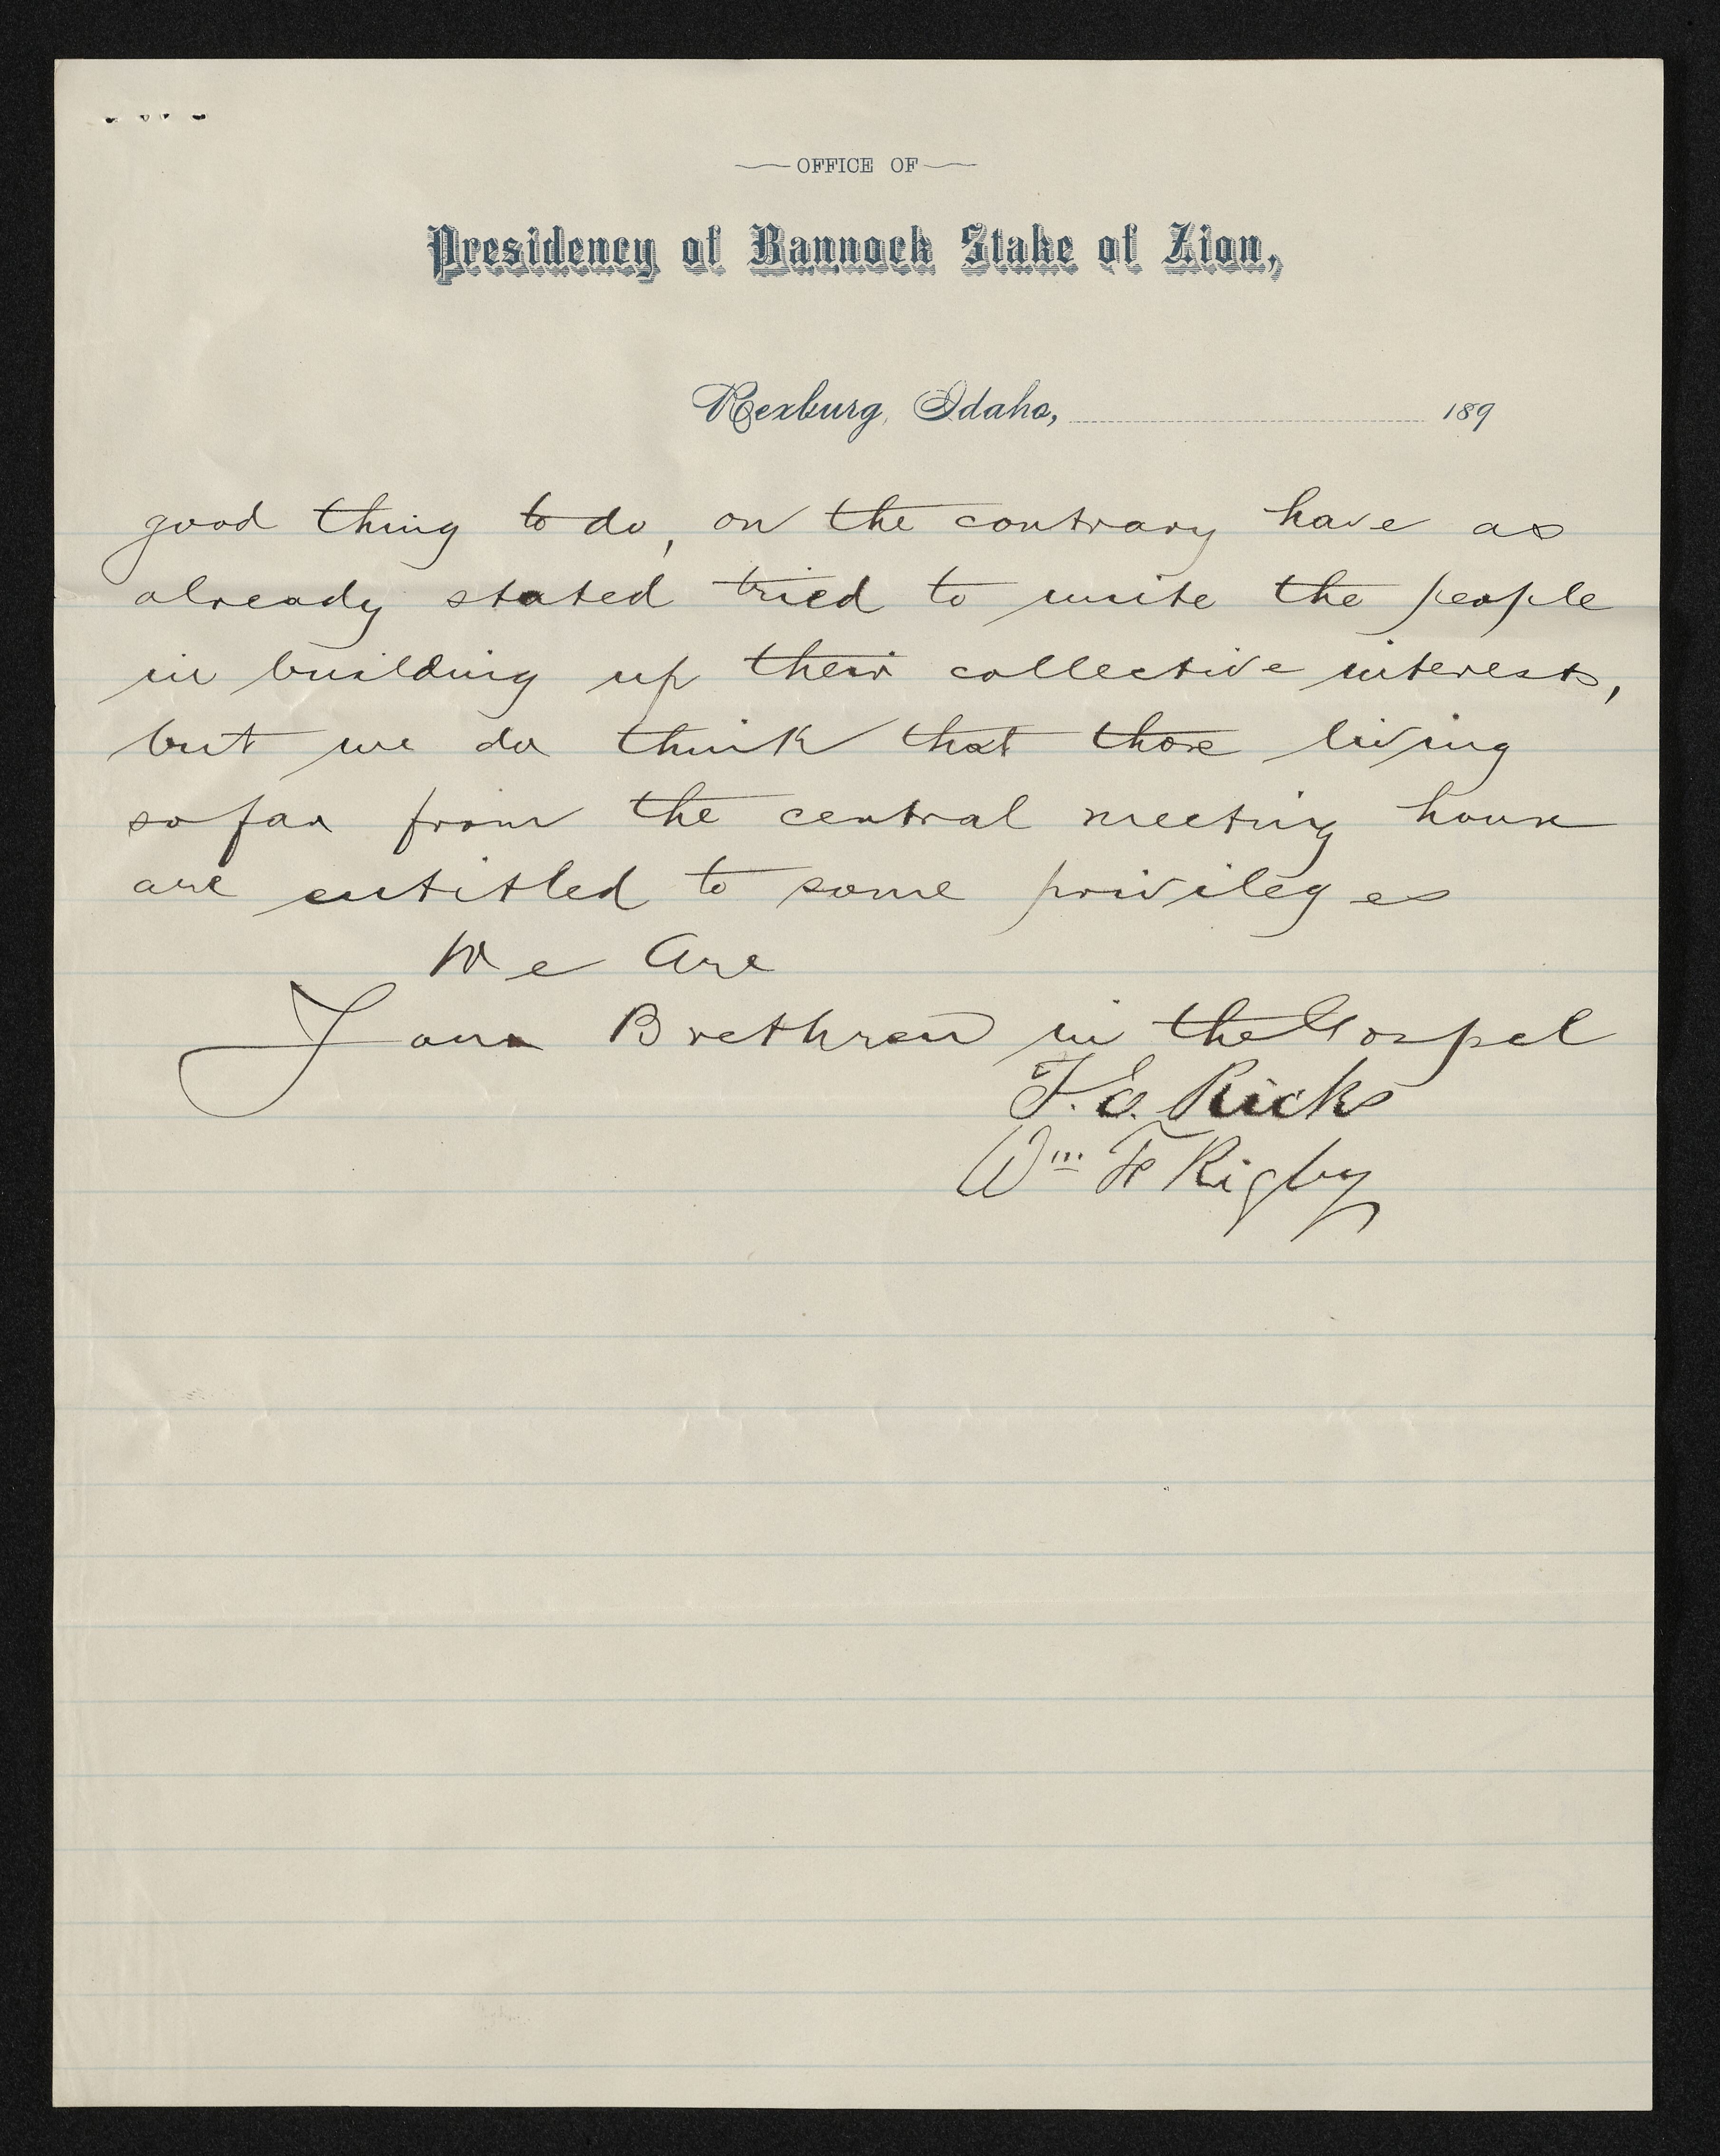 OFFICE OF
Presidency of Bannock Stake of Zion,
Rexburg, Idaho, 189
good thing to do, on the contrary have as
already stated tried to unite the people
in building up their collective interests,
but we do think that those living
so far from the central meeting house
are entitled to some privileges
We Are
Your Brethren in the Gospel
T. E. Ricks
Wm F Rigby